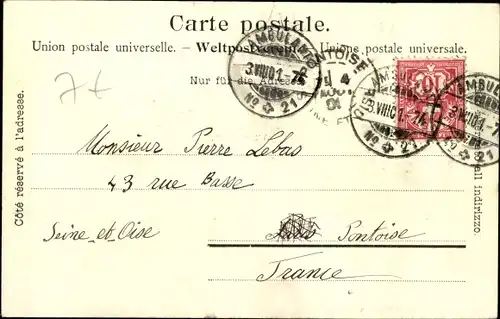 Carte postale.
Union postale universelle. – Weltpostverein. – Unione postale universale.
Nur für die Adresse
7+
AMBULANT
3.VIII01.-
No 21
PONTOISE
4
AOUT
01
SEINE ET
AMBULANT
3.VIII01.-
No 21
AMBULANT
3.VIII01.-
No 21
10
Côté réservé à l'adresse.
Monsieur Pierre Lebas
43 rue Basse
Seine_et_Oise
Pontoise
France
all indirizzo.